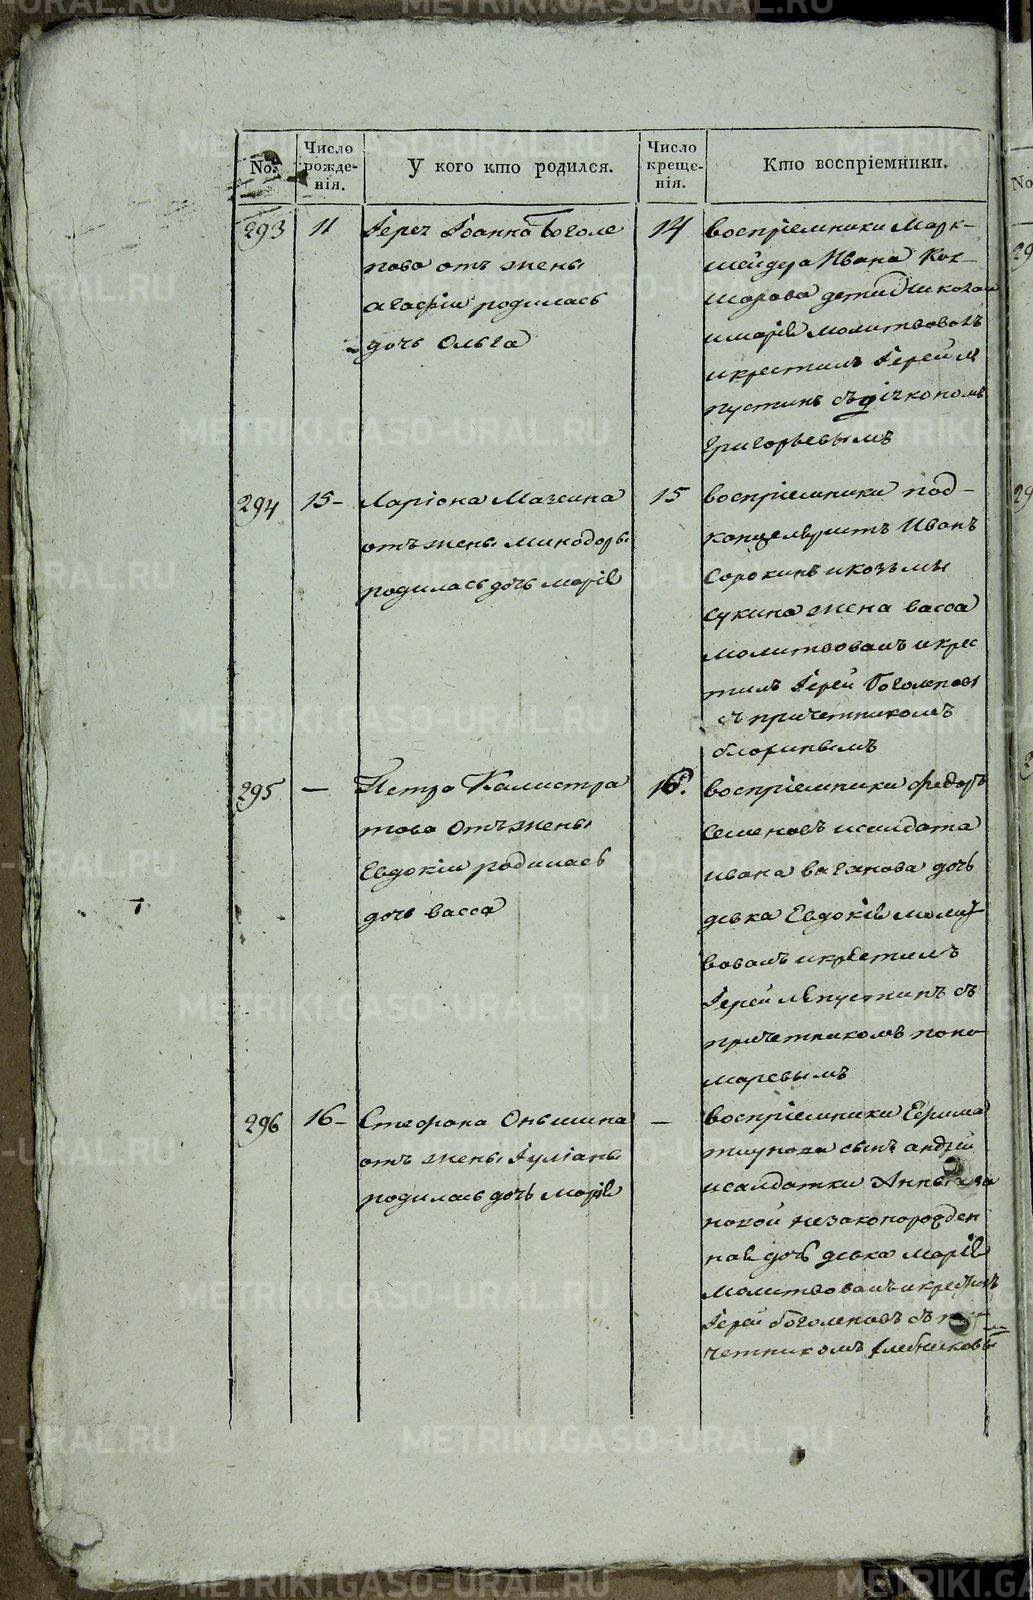 No.
Число рожде-нія.
У кого кто родился.
Число креще-нія.
Кто воспріемники.
293
11
Іерея Іоанна Боголе
пова отъ жены
агафіи родилась
дочь Ольга
14
воспріемники Марк-
шейдера Ивана Кок-
шарова дети Николай
и марія молитвовалъ
и крестилъ Іерей
съ діячкономъ
Григорьевымъ
294
15-
Ларіона Мажина
отъ жены минодоры
родилась дочь марія
15
воспріемники под-
канцеляристъ Иванъ
Сорокинъ и козьмы
сукина жена васса
молитвовалъ и крес
тилъ Іерей боголеповъ
съ причетникомъ
295
—
Петра Калистра
това отъ жены
Евдокіи родилась
дочь васса
16.
воспріемники федоръ
Семеновъ исалдата
ивана ваганова дочь
девка Евдокія молит
вовалъ и крестилъ
Іерей съ
причетникомъ поно
маревымъ
296
16-
Стефана Оньшина
отъ жены Іуліаны
родилась дочь марія
—
воспріемники Ефима
сынъ андрей
исалдатки Анны
незаконорожден
ная дочь девка марія
молитвовалъ и крестилъ
Іерей боголеповъ съ при
четникомъ
METRIKI.GASO-URAL.RU